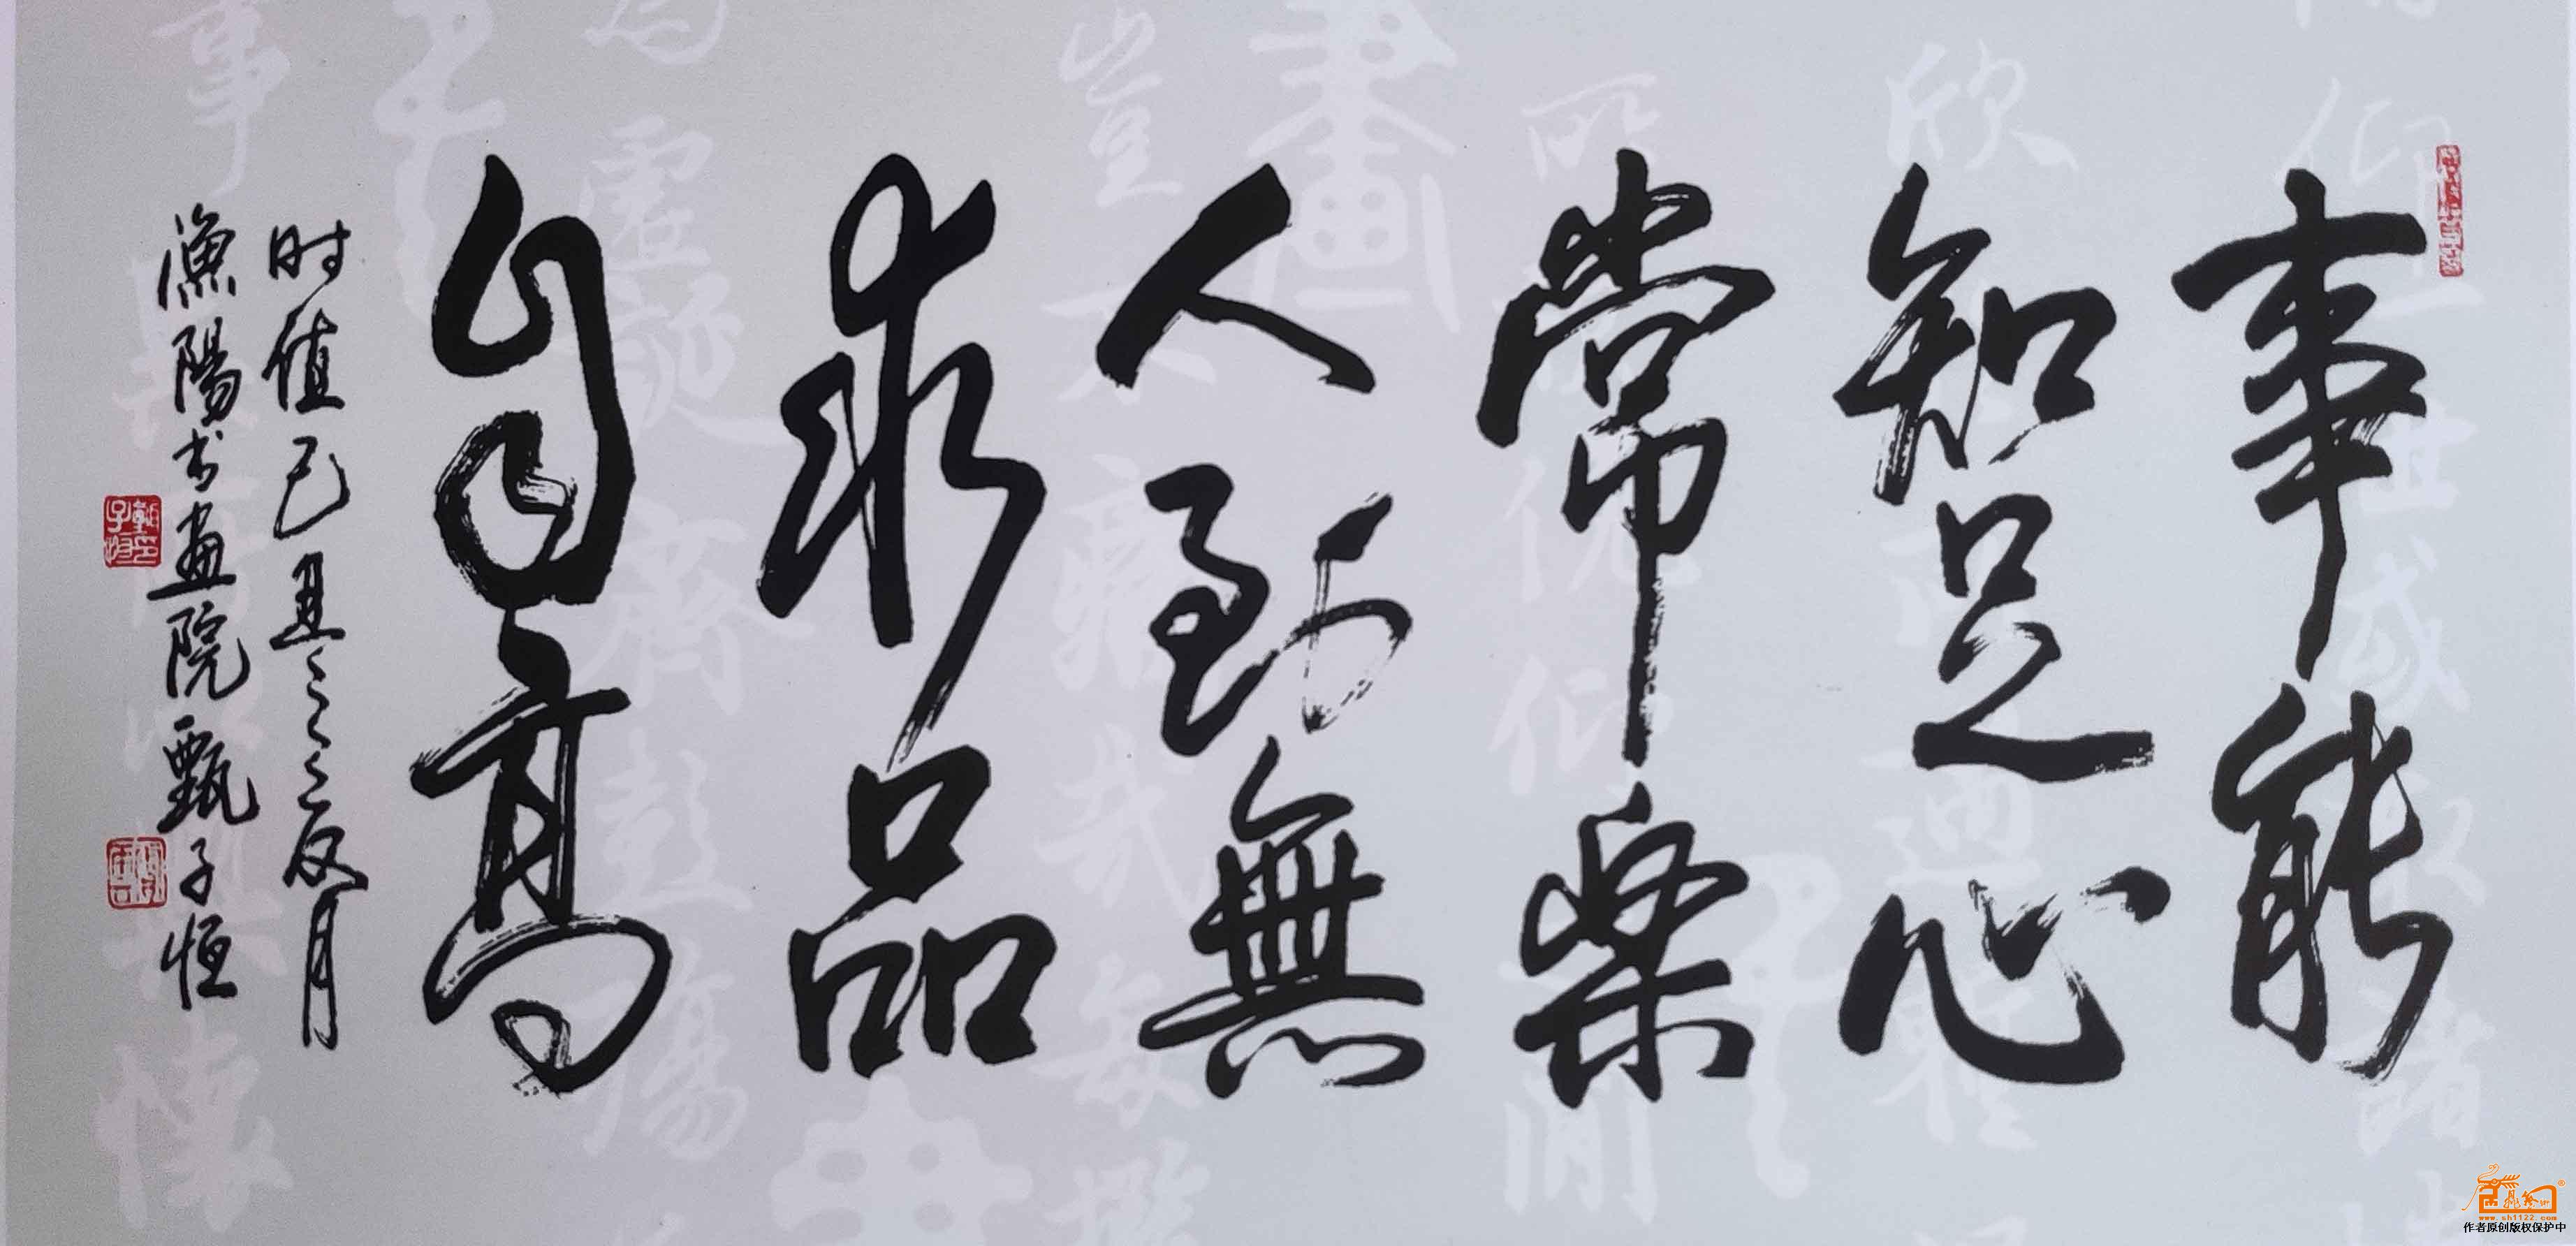 事能
知足心
常樂
人到無
求品
自高
时值己丑之
月
漁陽书畫院甄子恒
www.sh1122.com
作者原创版权保护中